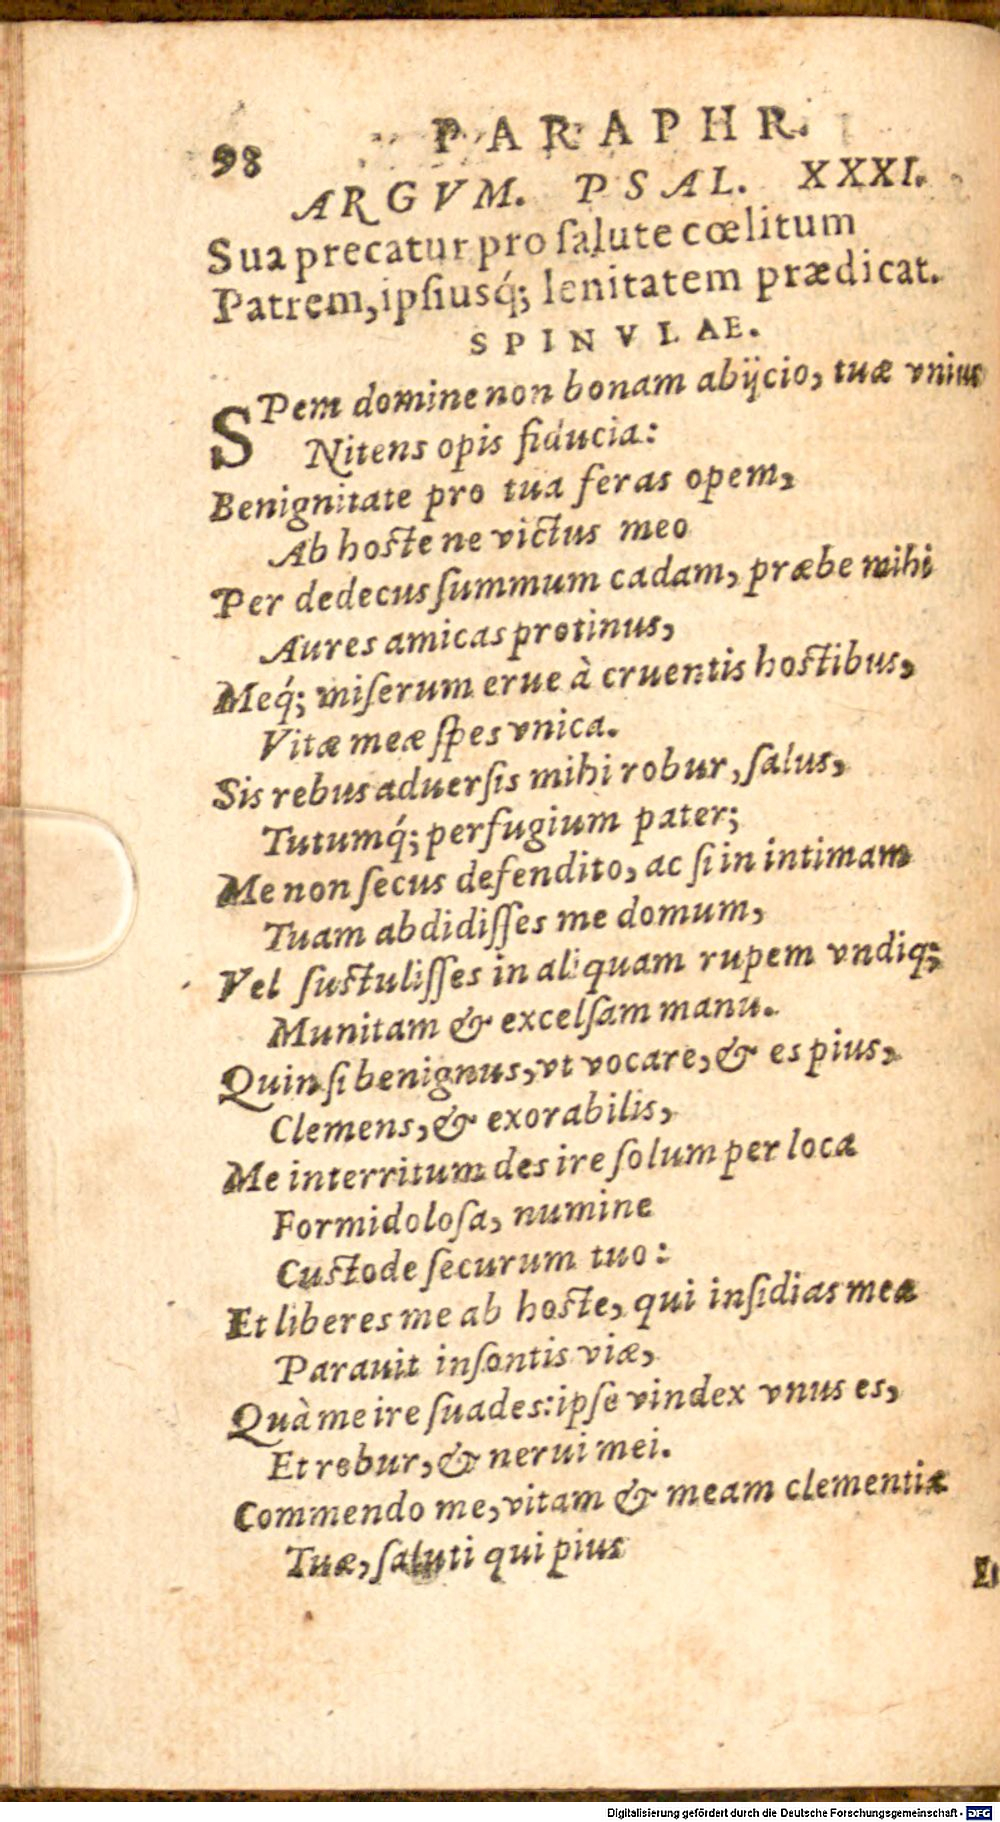 98 PARAPHR.
ARGVM. PSAL. XXXI.
Sua precatur pro ſalute cœlitum
Patrem, ipſiusq́; lenitatem prædicat.
SPINVLAE.
SPem domine non bonam abijcio, tuæ vnius
Nitens opis fiducia:
Benignitate pro tua feras opem,
Ab hoſte ne victus meo
Per dedecus ſummum cadam, præbe mihi
Aures amicas protinus,
Meq́; miſerum erue à cruentis hoſtibus,
Vitæ meæ ſpes vnica.
Sis rebus aduerſis mihi robur, ſalus,
Tutumq́; perfugium pater;
Me non ſecus defendito, ac ſi in intimam
Tuam abdidiſſes me domum,
Vel ſuſtuliſſes in aliquam rupem vndiq;
Munitam & excelſam manu.
Quin ſi benignus, vt vocare, & es pius,
Clemens, & exorabilis,
Me interritum des ire ſolum per loca
Formidoloſa, numine
Cuſtode ſecurum tuo:
Et liberes me ab hoſte, qui inſidias meæ
Parauit inſontis viæ,
Quà me ire ſuades: ipſe vindex vnus es,
Et robur, & nerui mei.
Commendo me, vitam & meam clementiæ
Tuæ, ſaluti qui pius
Digitalisierung gefördert durch die Deutsche Forschungsgemeinschaft - DFG